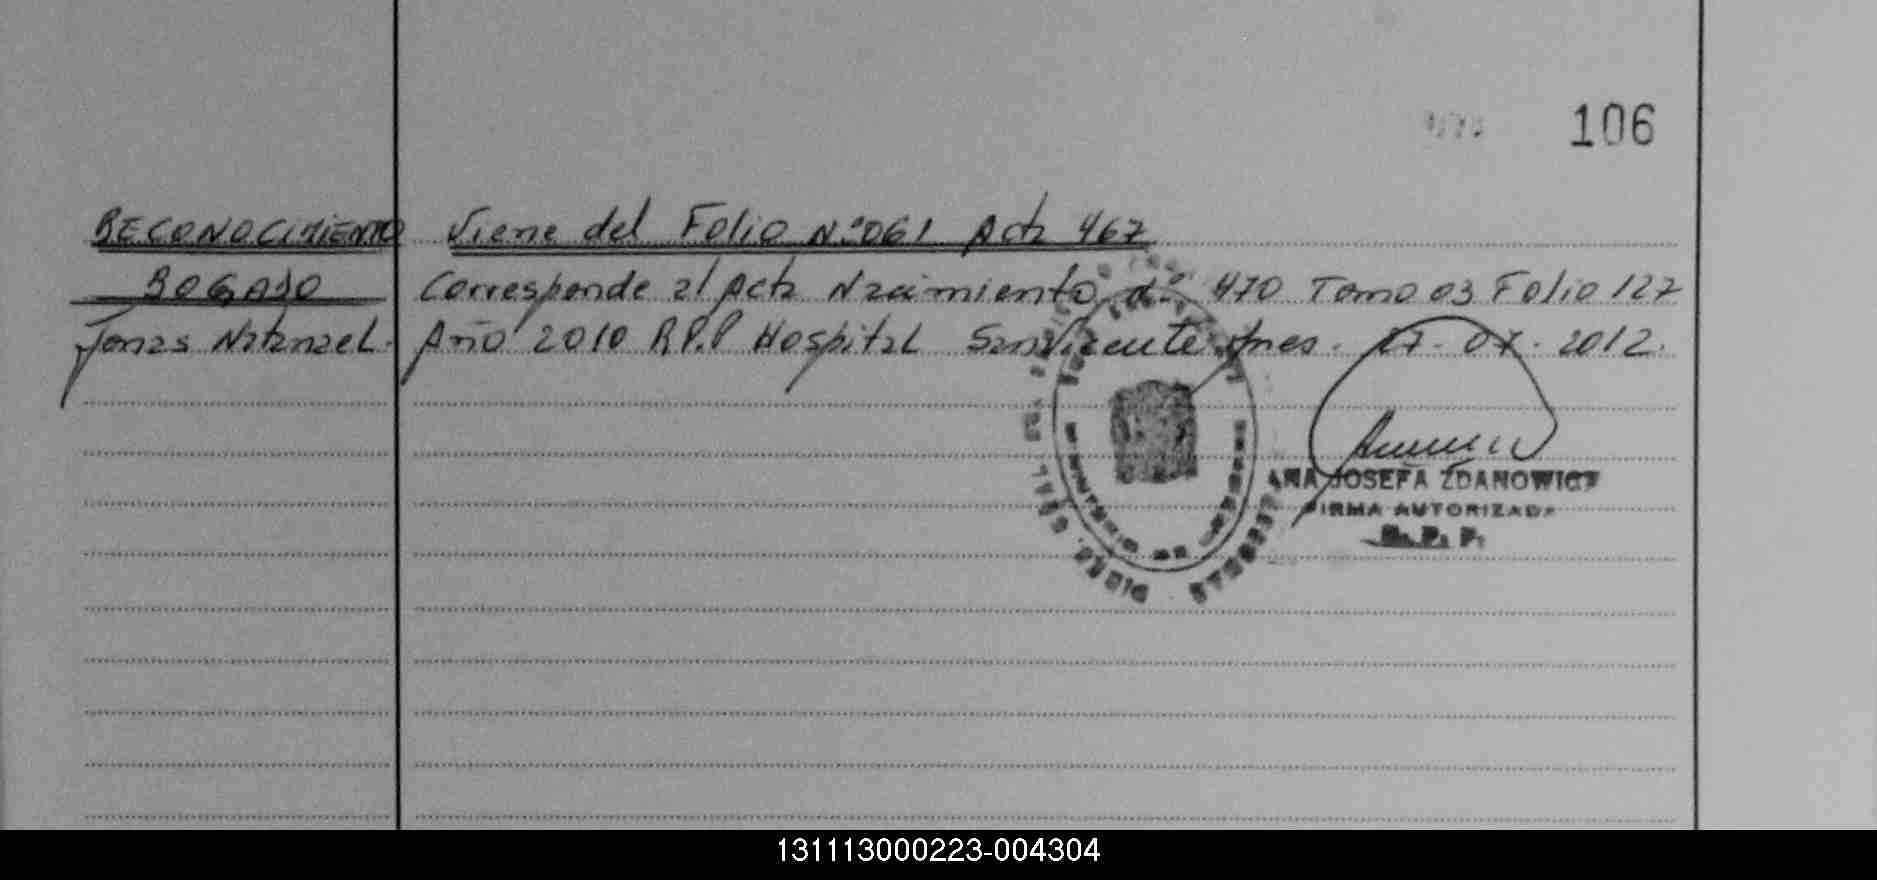 106
RECONOCIMIENTO Viene del Folio Nº 061 Acta 467
BOGADO Corresponde al Acta Nacimiento nº 470 Tomo 03 Folio 127
Jonas Natanael. Año 2010 R.P.P Hospital San Vicente Mnes. 27-07-2012.
ANA JOSEFA ZDANOWICZ
FIRMA AUTORIZADA
R. P. P.
131113000223-004304